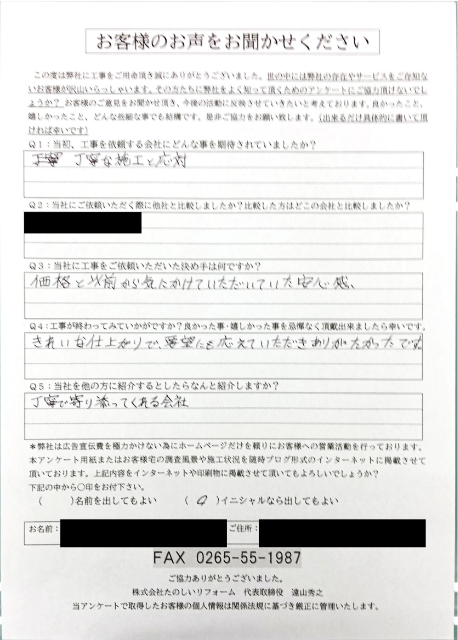 お客様のお声をお聞かせください
この度は弊社に工事をご用命頂き誠にありがとうございました。世の中には弊社の存在やサービスをご存知ない
お客様が沢山いらっしゃいます。その方たちに弊社をよく知って頂くためのアンケートにご協力頂けないでし
ょうか？お客様のご意見をお聞かせ頂き、今後の活動に反映させていきたいと考えております。良かったこと、
嬉しかったこと、どんな些細な事でも結構です。是非ご協力をお願い致します。(出来るだけ具体的に書いて頂
ければ幸いです)
Q1：当初、工事を依頼する会社にどんな事を期待されていましたか？
丁寧な施工と応対
Q2：当社にご依頼いただく際に他社と比較しましたか？比較した方はどこの会社と比較しましたか？
Q3：当社に工事をご依頼いただいた決め手は何ですか？
価格と以前から気にかけていただいていた安心感、
Q4：工事が終わってみていかがですか？良かった事・嬉しかった事を忌憚なく頂戴出来ましたら幸いです。
きれいな仕上がりで、要望にも応えていただきありがたかったです
Q5：当社を他の方に紹介するとしたらなんと紹介しますか？
丁寧で寄り添ってくれる会社
＊弊社は広告宣伝費を極力かけない為にホームページだけを頼りにお客様への営業活動を行っております。
本アンケート用紙またはお客様宅の調査風景や施工状況を随時ブログ形式のインターネットに掲載させて
頂いております。上記内容をインターネットや印刷物に掲載させて頂いてもよろしいでしょうか？
下記の中から〇印をお付下さい。
（　　）名前を出してもよい　　（ ○ ）イニシャルなら出してもよい
お名前： ご住所：
FAX 0265-55-1987
ご協力ありがとうございました。
株式会社たのしいリフォーム　代表取締役　遠山秀之
当アンケートで取得したお客様の個人情報は関係法規に基づき厳正に管理いたします。